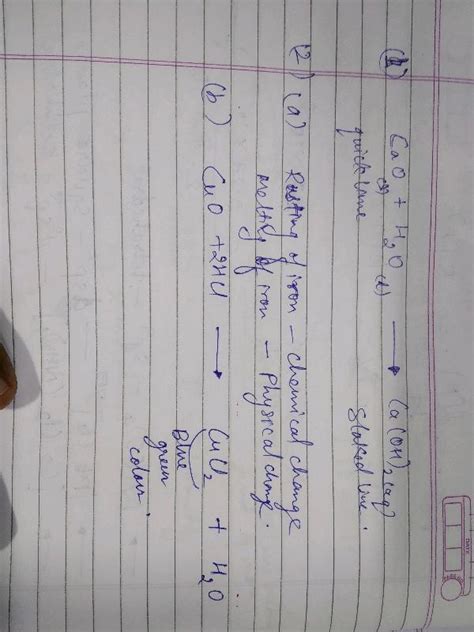 (b) CaO + H2O → Ca(OH)2 (aq)
(s) (l)
quick lime Slaked lime.
(2) (a) Rusting of iron – Chemical change
Melting of iron – Physical change.
(b) CuO + 2HCl → CuCl2 + H2O
Blue
green
colour.
DATE